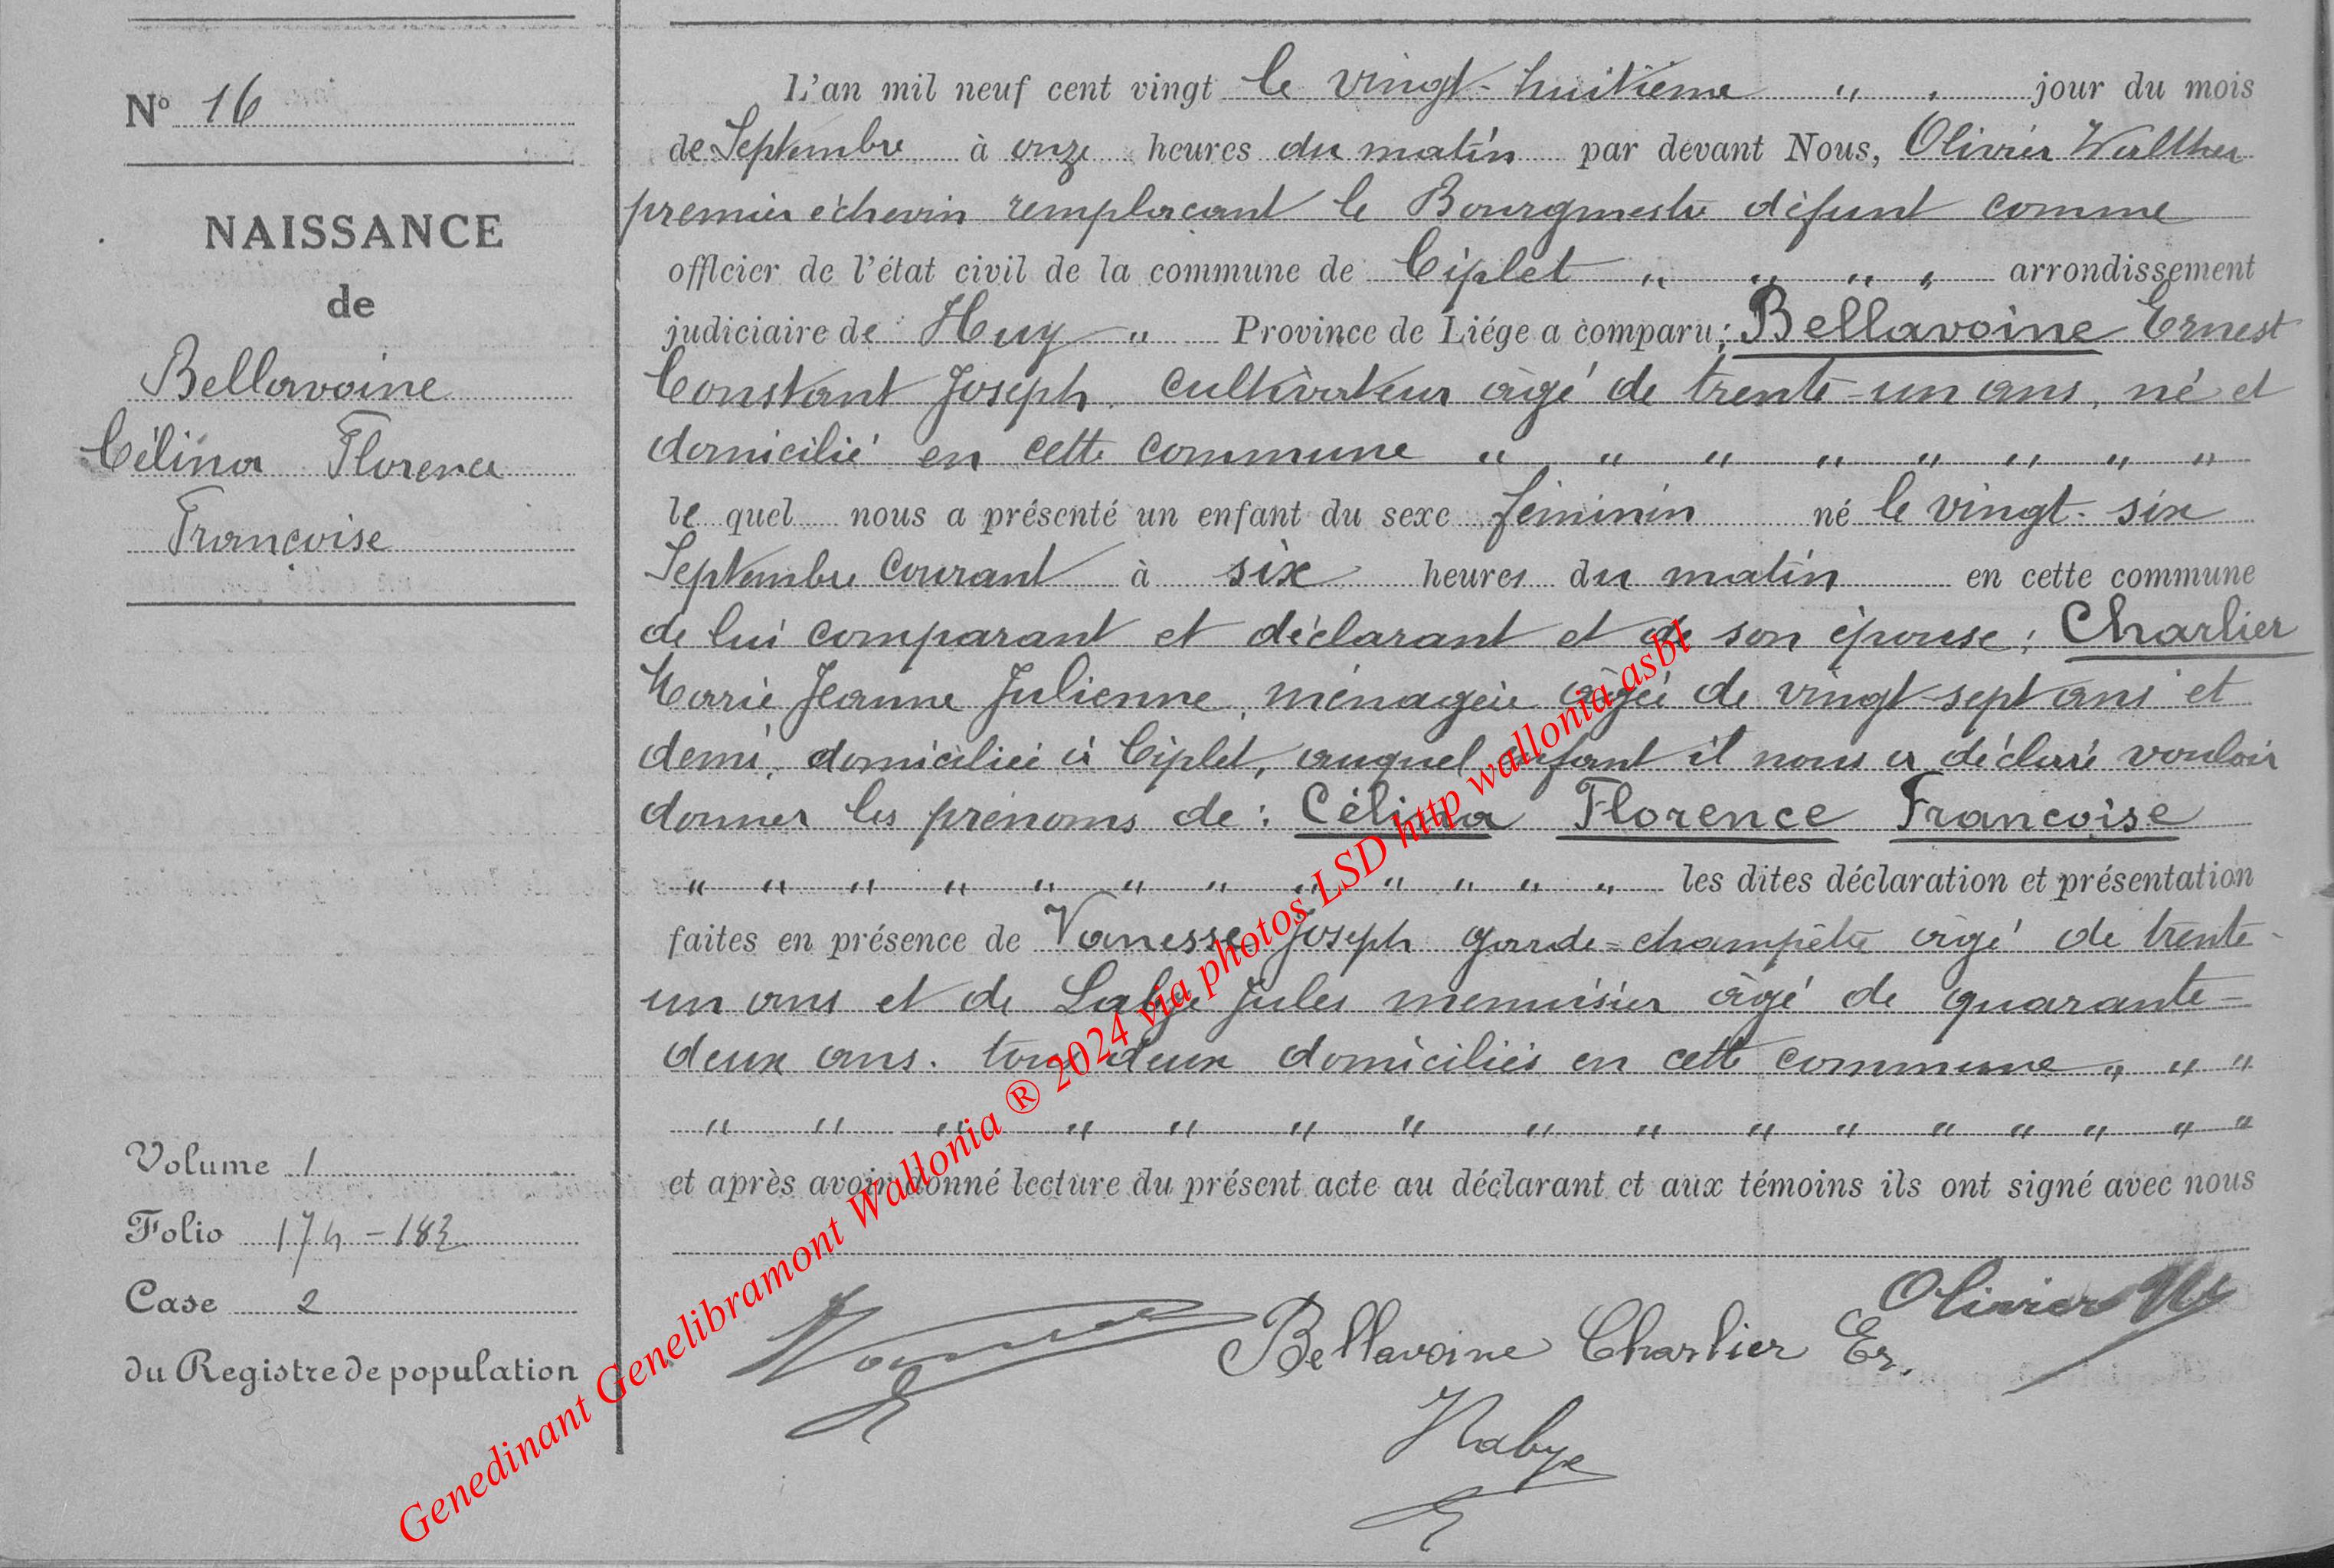 N° 16
NAISSANCE
de
Bellavoine
Célina Florence
Françoise
Volume 1
Folio 174 - 182
Case 2
du Registre de population
L'an mil neuf cent vingt le vingt-huitième " " jour du mois
de Septembre à onze heures du matin par devant Nous, Olivier Walther
premier échevin remplaçant le Bourgmestre défunt comme
officier de l'état civil de la commune de Ciplet " " " " arrondissement
judiciaire de Huy " Province de Liége a comparu : Bellavoine Ernest
Constant Joseph, cultivateur âgé de trente-un ans, né et
domicilié en cette commune " " " " " " " "
le quel nous a présenté un enfant du sexe féminin né le vingt-six
Septembre courant à six heures du matin en cette commune
de lui comparant et déclarant et de son épouse ; Charlier
Marie Jeanne Julienne, ménagère âgée de vingt-sept ans et
demi, domiciliée à Ciplet, auquel enfant il nous a déclaré vouloir
donner les prénoms de : Célina Florence Françoise
" " " " " " " " " " " " les dites déclaration et présentation
faites en présence de Vanesse Joseph garde=champêtre âgé de trente-
un ans et de Labye Jules menuisier âgé de quarante=
deux ans. tous deux domiciliés en cette commune " " "
" " " " " " " " " " " " " " " "
et après avoir donné lecture du présent acte au déclarant et aux témoins ils ont signé avec nous
Olivier W
Bellavoine Charlier Er.
Genedinant Genelibramont Wallonia ® 2024 via photos LSD http wallonia asbl